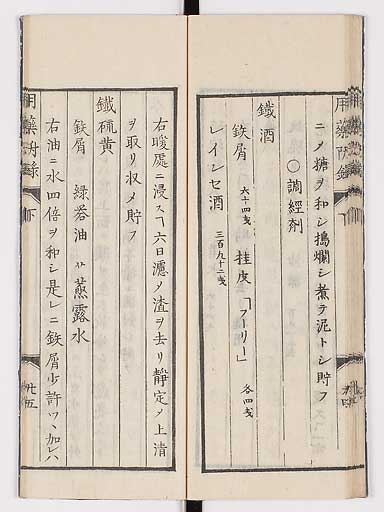 ニノ糖ヲ和シ搗爛シ煮テ泥トシ貯フ
〇調經剤
鐵酒
鉄屑 六十四戔 桂皮「フーリー」 各四戔
レインセ酒 三百九十二戔
右暖處ニ浸スヿ六日濾ノ渣ヲ去リ靜定ノ上清
ヲ取リ収メ貯フ
鐵硫黄
鉄屑 緑礬油 蒸露水
右油ニ水四倍ヲ和シ是レニ鉄屑少許ツヽ加レハ
用藥
下
廿五